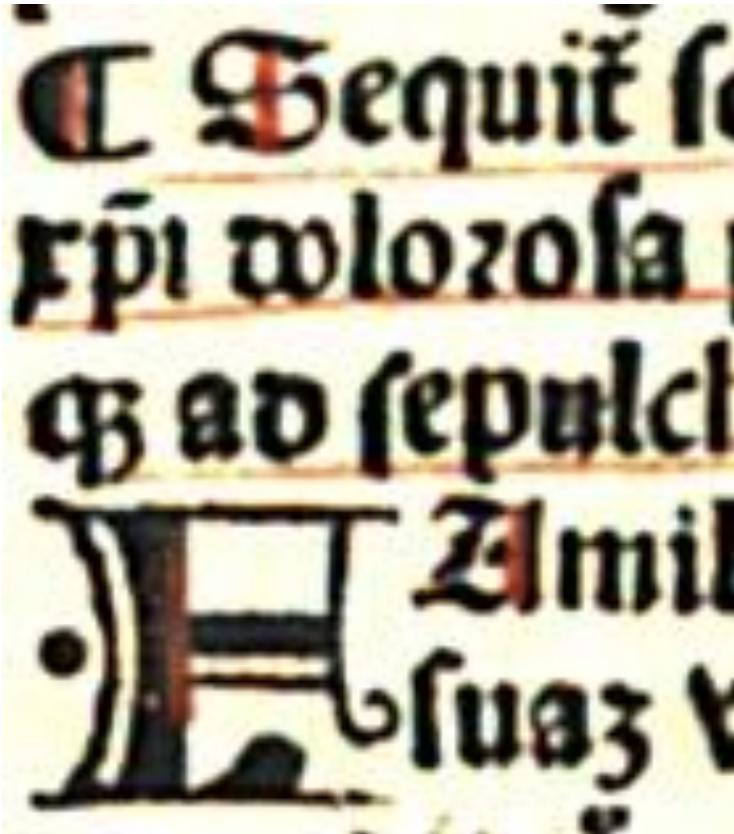 ¶ Sequit᷑ ſe
xp̄i doloroſa
qꝫ ad ſepulch
F Amil
ſuaꝫ v